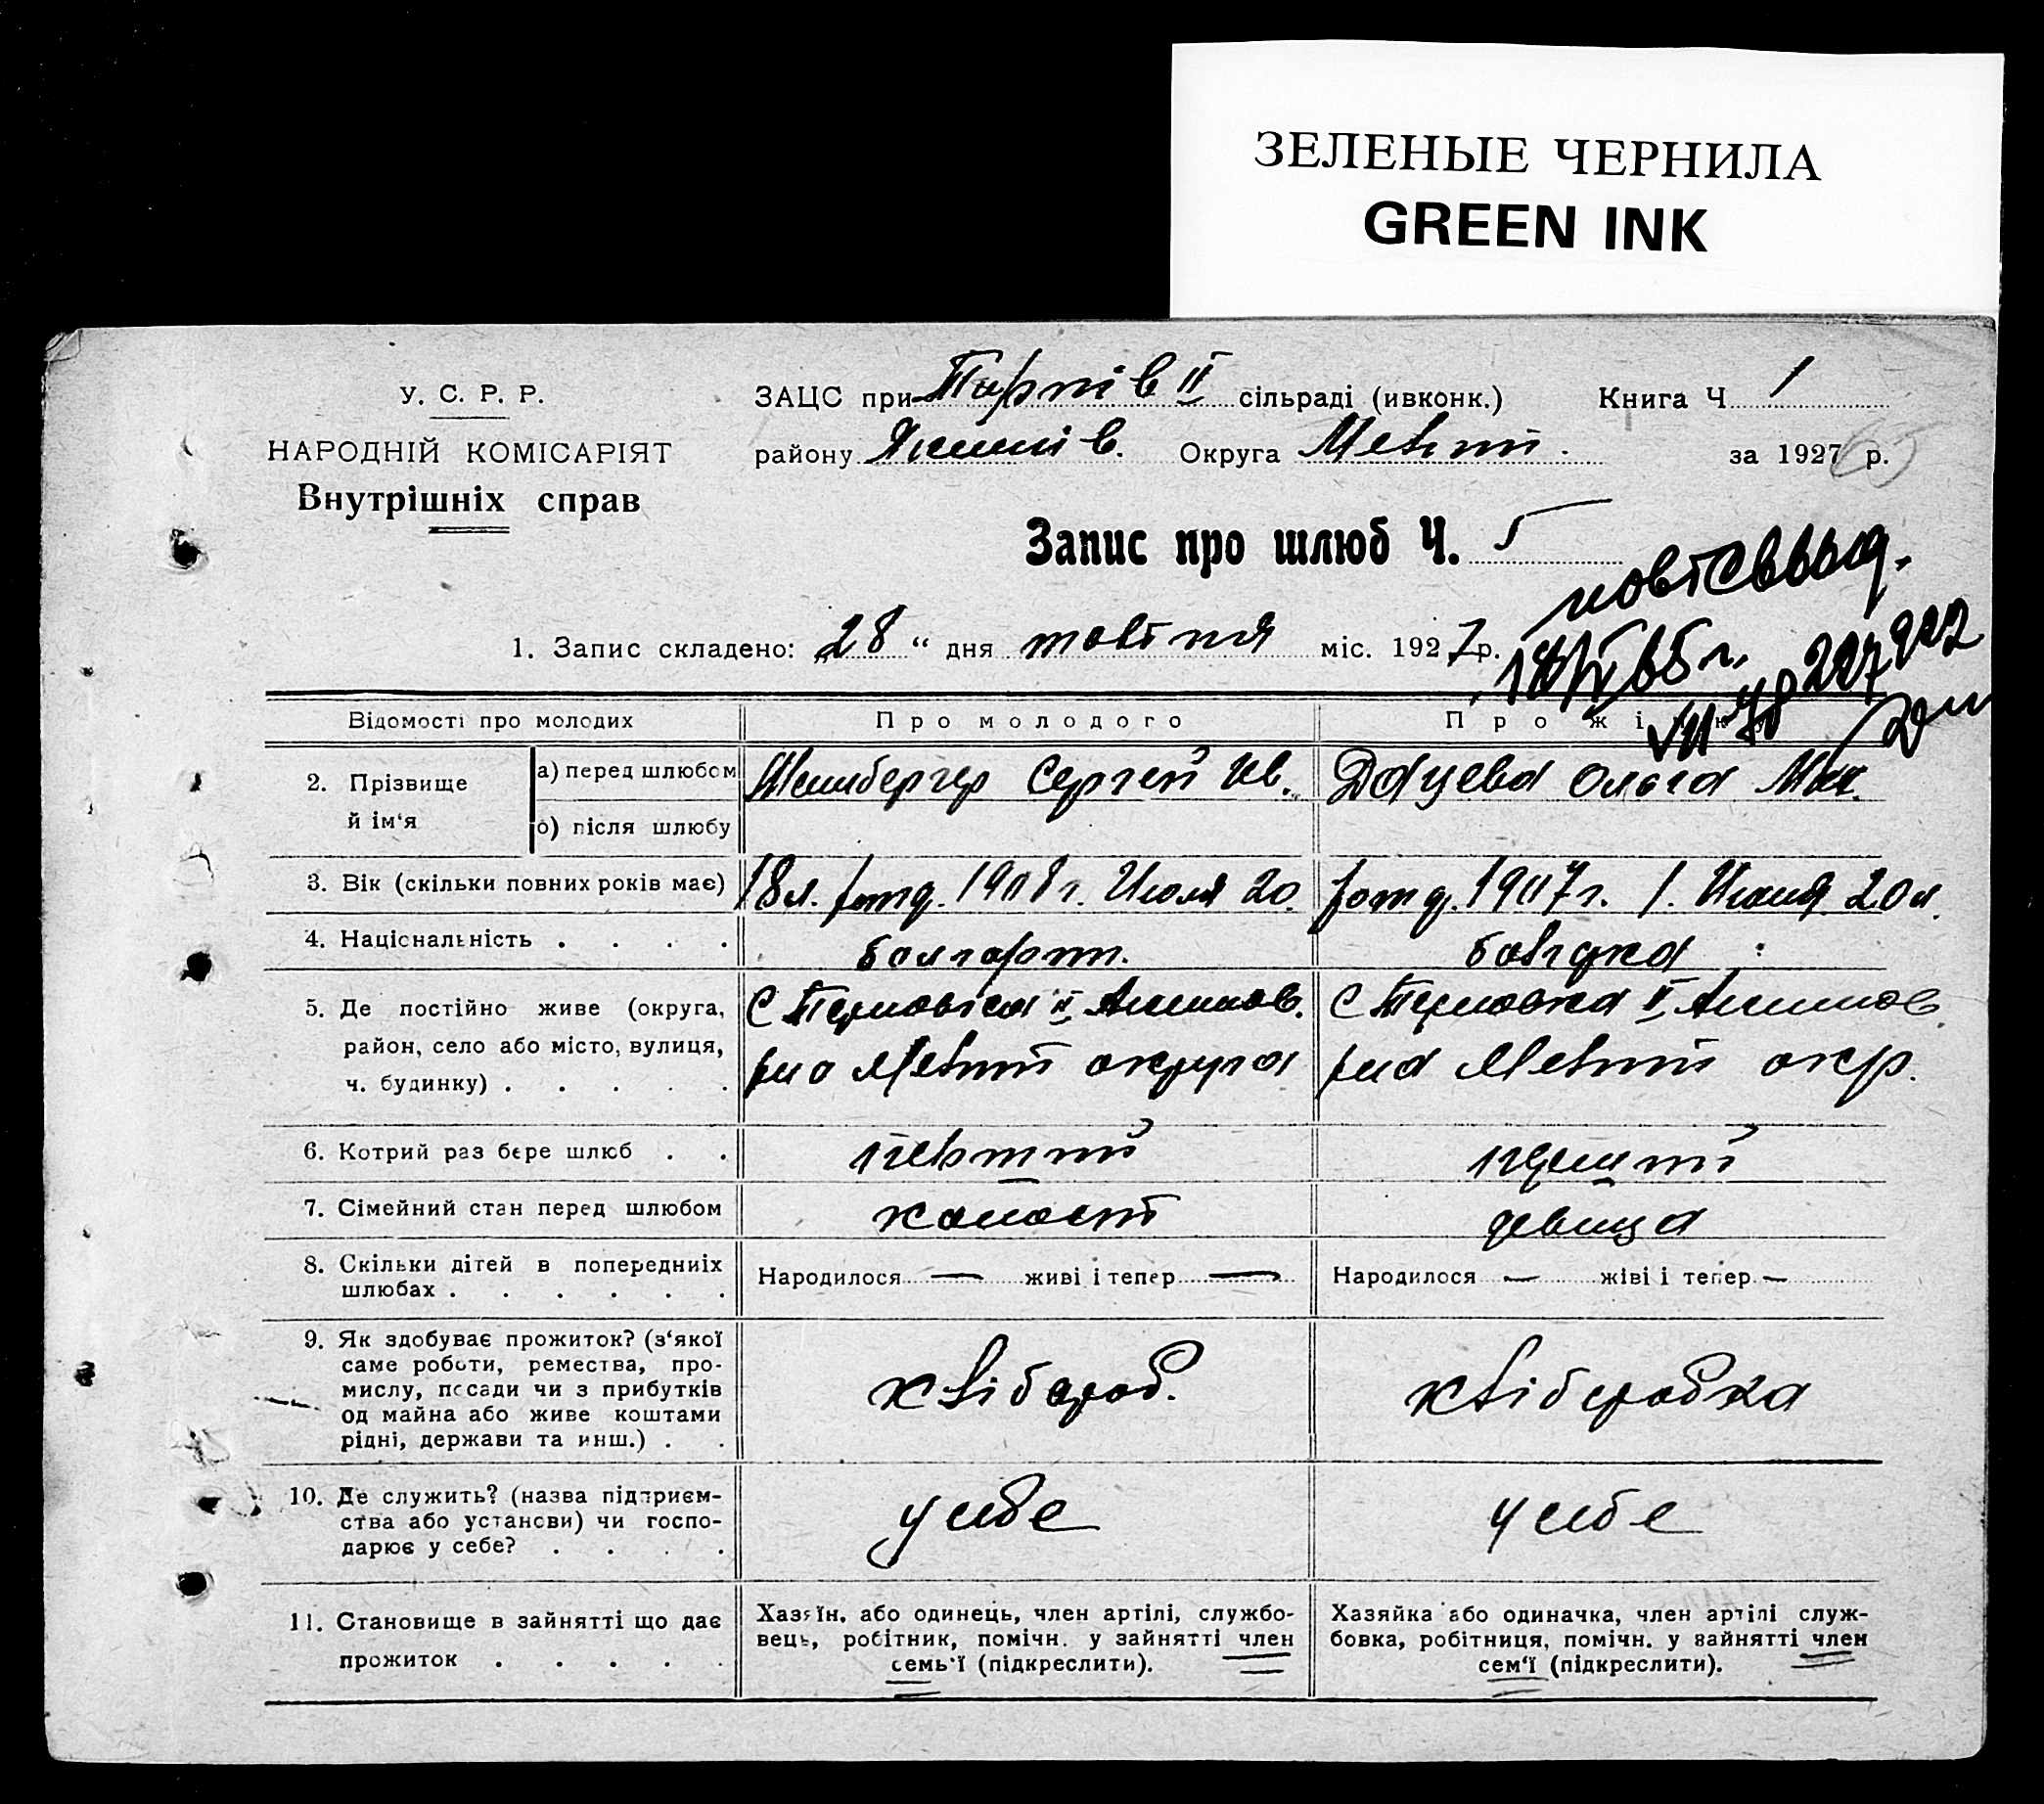 ЗЕЛЕНЫЕ ЧЕРНИЛА
GREEN INK
У. С. Р. Р.
НАРОДНІЙ КОМІСАРІЯТ
Внутрішніх справ
ЗАЦС при II сільраді (ивконк.) Книга Ч 1
району Округа за 1927 р.
Запис про шлюб Ч. 5
1. Запис складено: „28“ дня жовтня міс. 1927 р.
Відомості про молодих
Про молодого
2. Прізвище й ім‘я
а) перед шлюбом
Сергей Ив.
Ольга
б) після шлюбу
3. Вік (скільки повних років має)
18 л. 1908 г. Июля 20.
1907 г. 1. 20 л.
4. Націснальність . . . .
5. Де постійно живе (округа,
район, село або місто, вулиця,
ч. будинку) . . . . .
С Терновка II
округа
С Терновка II
окр.
6. Котрий раз бере шлюб . .
перший
перший
7. Сімейний стан перед шлюбом
холост
девица
8. Скільки дітей в попередніх
шлюбах . . . . . .
Народилося — живі і тепер —
Народилося — жіві і тепер —
9. Як здобуває прожиток? (з‘якої
саме роботи, ремества, про-
мислу, посади чи з прибутків
од майна або живе коштами
рідні, держави та инш.) . .
хлібороб.
хліборобка
10. Де служить? (назва підприєм-
ства або установи) чи госпо-
дарює у себе? . . . .
у себе
у себе
11. Становище в зайнятті що дає
прожиток . . . . .
Хазяїн, або одинець, член артілі, службо-
вець, робітник, помічн. у зайнятті член
семь‘ї (підкреслити).
Хазяйка або одиначка, член артілі служ-
бовка, робітниця, помічн. у зайнятті член
сем‘ї (підкреслити).